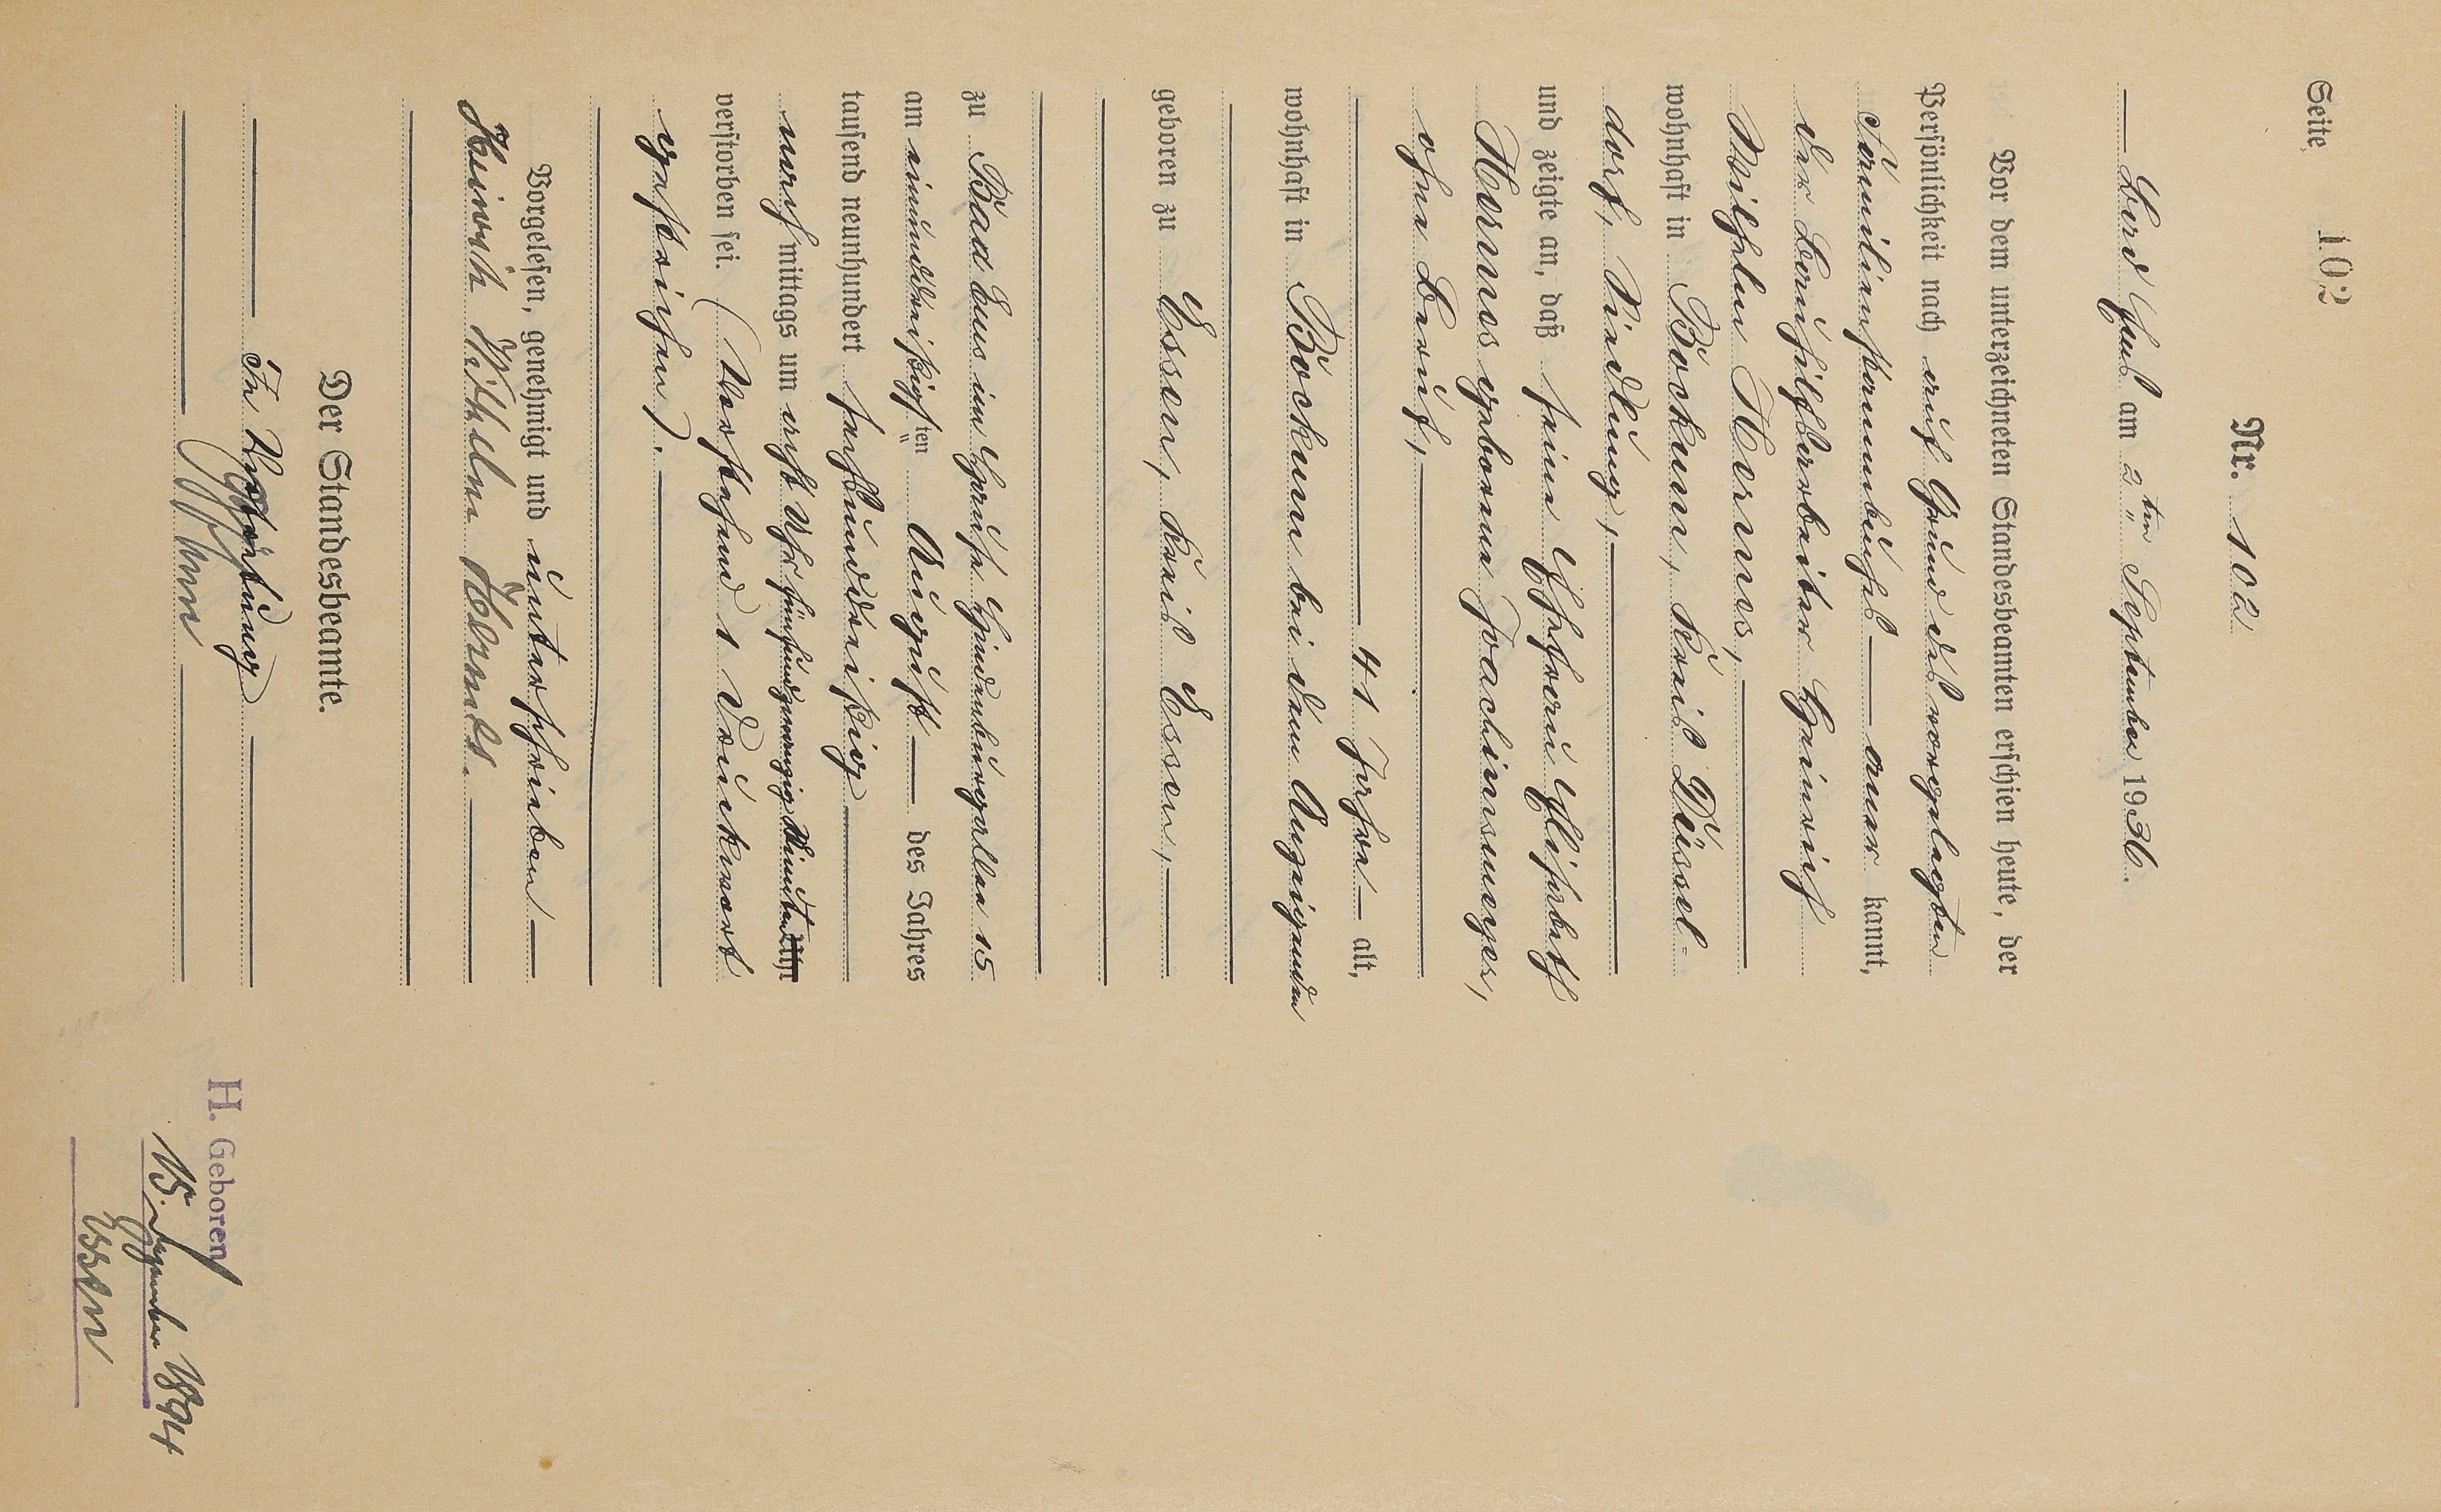 Seite 102
Nr. 102
Bad Ems am 2ten September 1936.
Vor dem unterzeichneten Standesbeamten erschien heute, der
Persönlichkeit nach auf Grund des vorgelegten
Familienstammbuchs — aner kannt,
der Berufshilfsarbeiter Heinrich
Wilhelm Hermes, —
wohnhaft in Bockum, Kreis Düssel-
dorf, Siedlung, —
und zeigte an, daß seine Ehefrau Elisabeth
Hermes geborene Joachimsmeyer,
ohne Beruf, —
— 41 Jahre — alt,
wohnhaft in Bockum bei dem Anzeigenden
geboren zu Essen, Kreis Essen, —
zu Bad Ems im Hause Hindenburgallee 15
am einunddreißigsten August — des Jahres
tausend neunhundert sechsunddreißig —
nach mittags um acht Uhr fünfundzwanzig Minuten
verstorben sei. (Vorstehend 1 Druckwort
gestrichen). —
Vorgelesen, genehmigt und unterschrieben —
Heinrich Wilhelm Hermes. —
Der Standesbeamte.
In Vertretung
H. Geboren
15. Dezember 1894
Essen